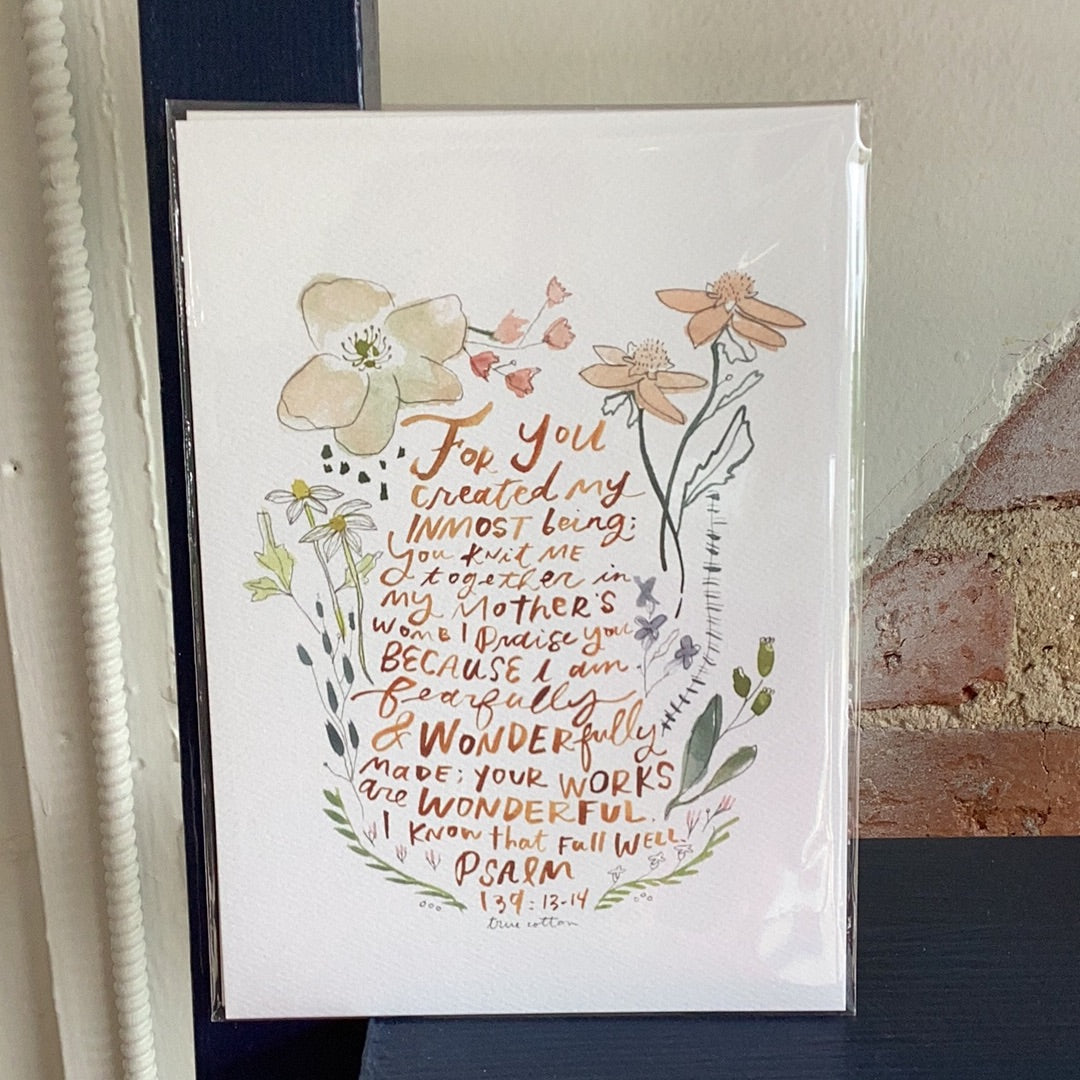 For You
created my
INMOST being;
you knit ME
together in
my Mother's
womb I Praise you
BECAUSE I am
fearfully
& WONDERfully
MADE; YOUR WORKS
are WONDERFUL.
I KNOW that Full WELL.
PSALM
139:13-14
true cotton